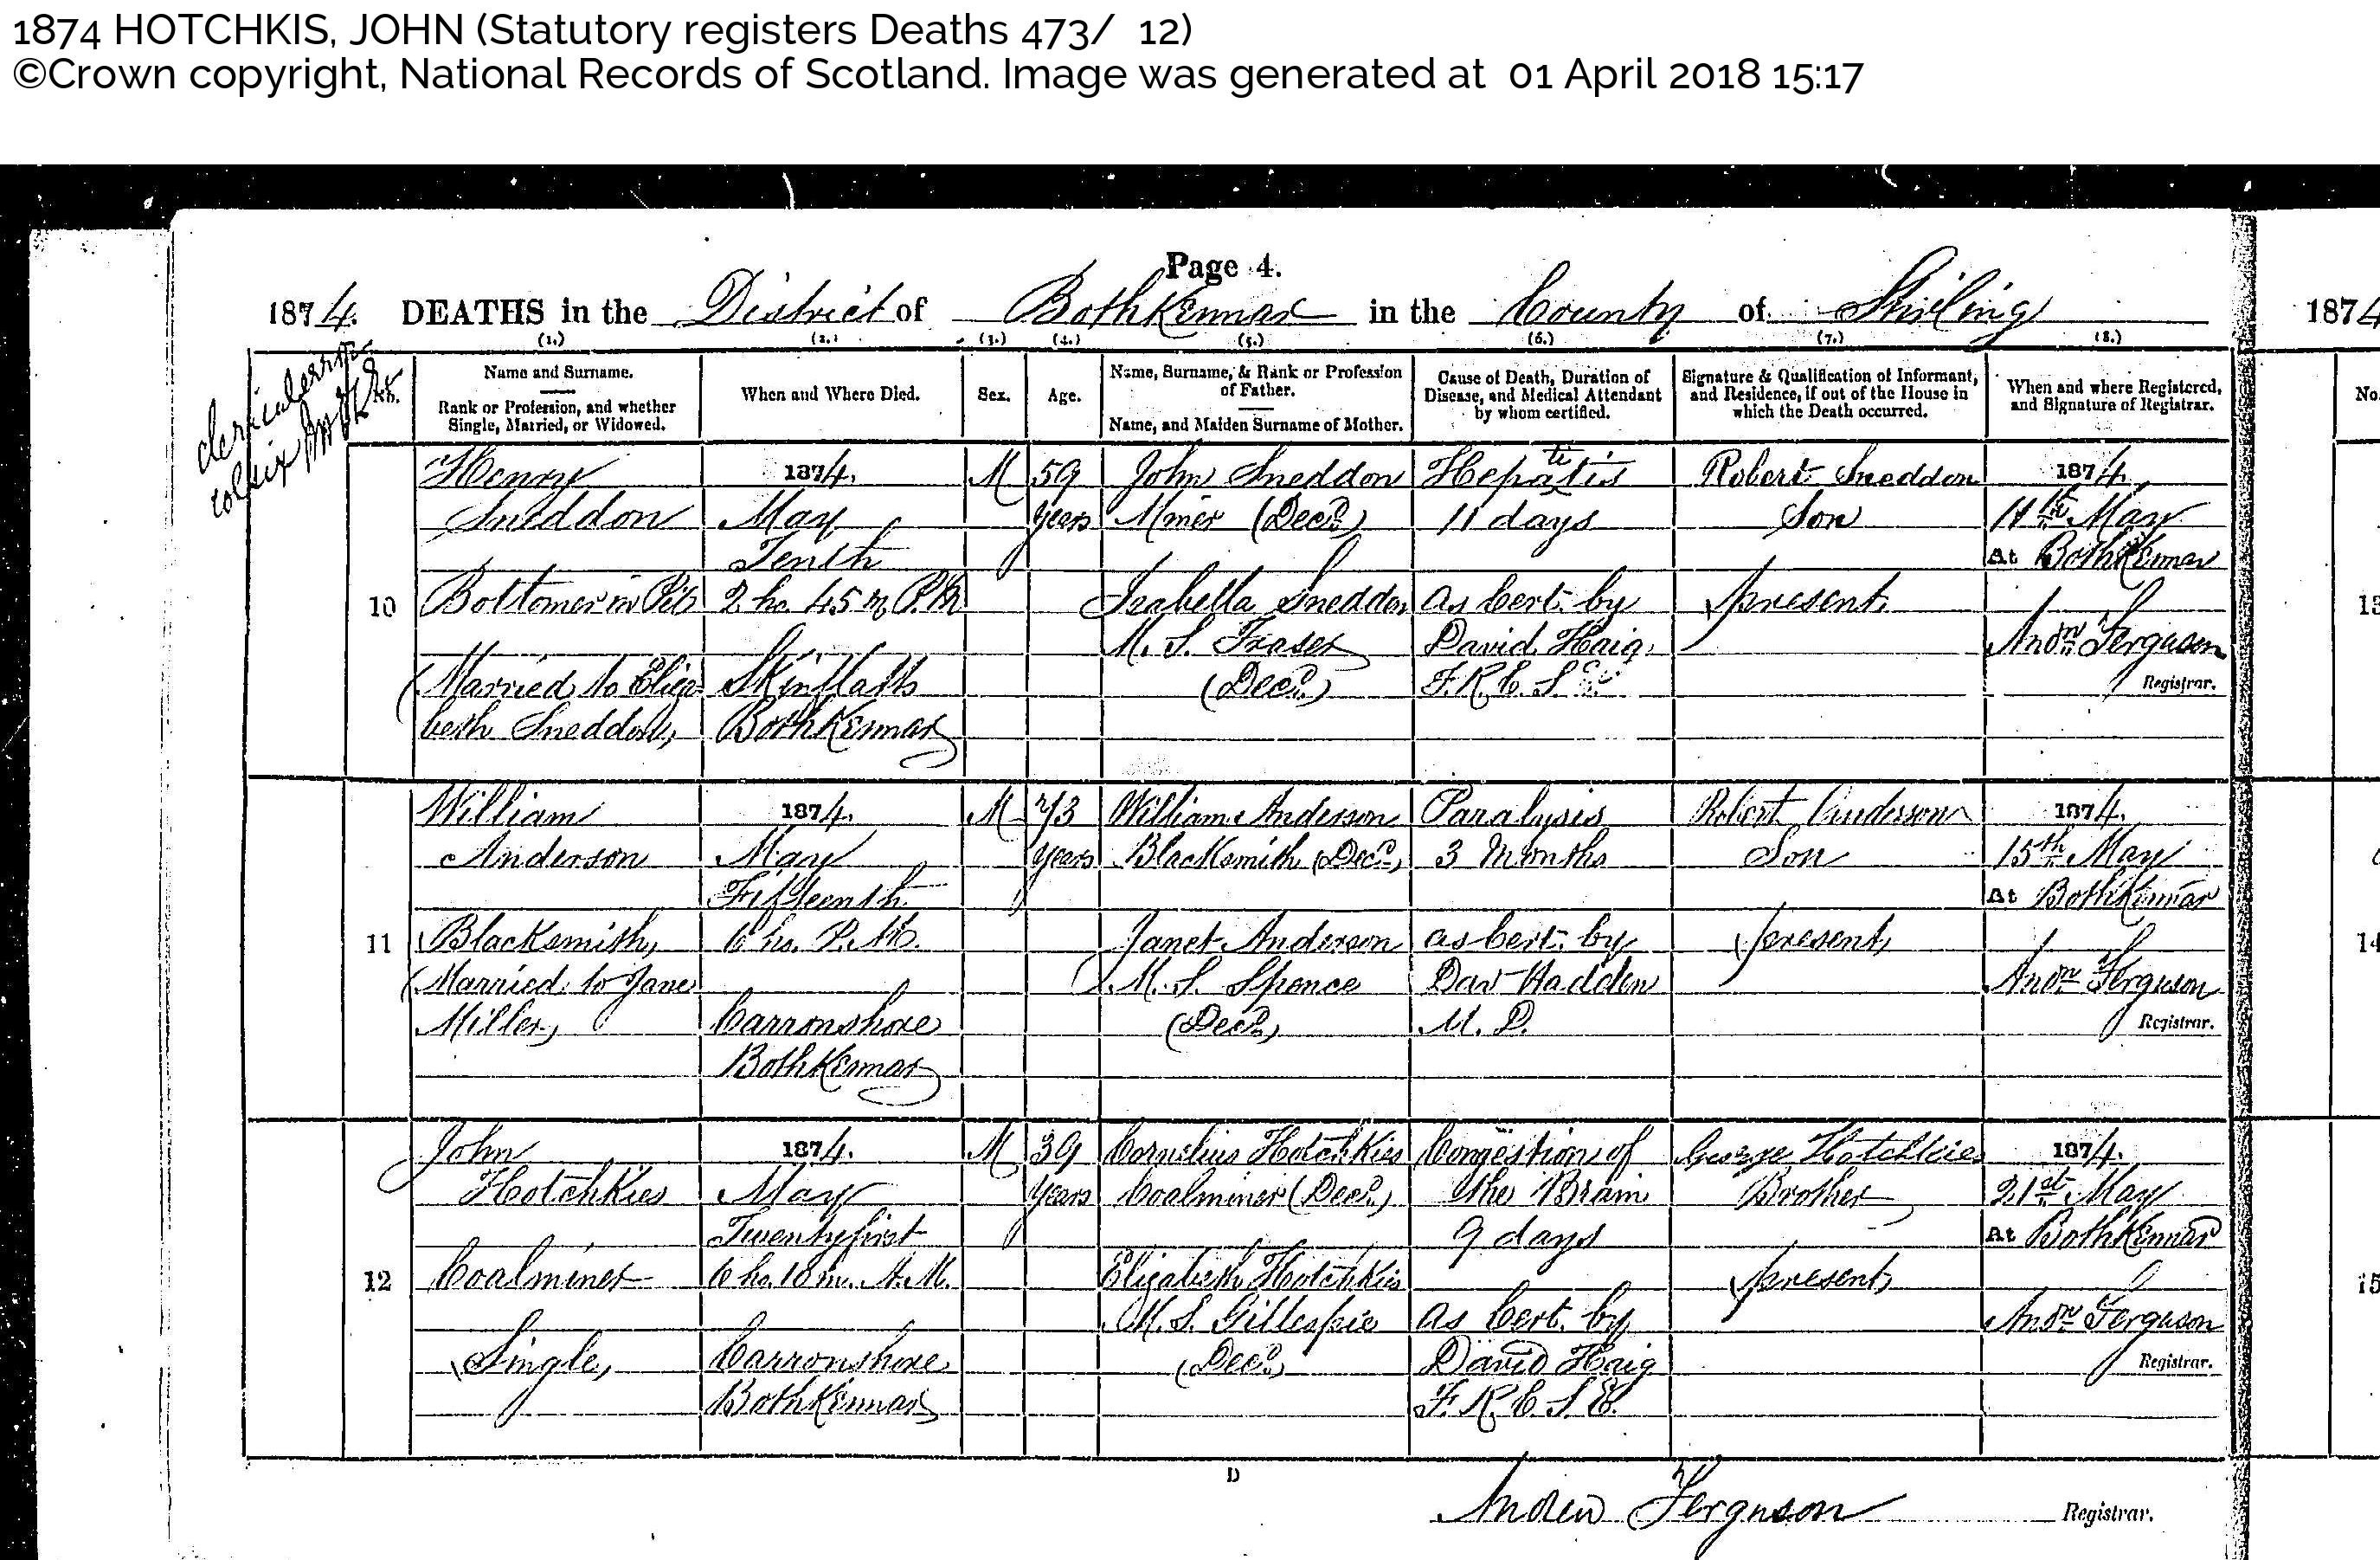 1874 HOTCHKIS, JOHN (Statutory registers Deaths 473/ 12)
©Crown copyright, National Records of Scotland. Image was generated at 01 April 2018 15:17
Page 4.
1874. DEATHS in the District of Bothkennar in the County of Stirling 1874
(1.) (2.) (3.) (4.) (5.) (6.) (7.) (8.)
clerical error
col six
No.
Name and Surname.
Rank or Profession, and whether
Single, Married, or Widowed.
When and Where Died.
Sex.
Age.
Name, Surname, & Rank or Profession
of Father.
Name, and Maiden Surname of Mother.
Cause of Death, Duration of
Disease, and Medical Attendant
by whom certified.
Signature & Qualification of Informant,
and Residence, if out of the House in
which the Death occurred.
When and where Registered,
and Signature of Registrar.
No.
10
Henry
Sneddon
Bottomer in Pit
(Married to Eliza
beth Sneddon)
1874.
May
Tenth
2 ho. 45 m P.M
Skinflatts
Bothkennar
M
59
years
John Sneddon
Miner (Decd.)
Isabella Sneddon
M. S. Fraser
(Decd.)
ti
Hepatis
11 days
As Cert. by
David Haig
F. R. C. S. E.
Robert Sneddon
Son
(present)
1874.
11th May
At Bothkennar
Andw. Ferguson
Registrar.
13
11
William
Anderson
Blacksmith
(Married to Jane
Miller)
1874.
May
Fifteenth
6 ho. P.M.
Carronshore
Bothkennar
M
73
years
William Anderson
Blacksmith (Decd.)
Janet Anderson
M. S. Spence
(Decd.)
Paralysis
3 Months
as Cert. by
Dav Hadden
M. D.
Robert Anderson
Son
(present)
1874.
15th May
At Bothkennar
Andw. Ferguson
Registrar.
14
12
John
Hotchkies
Coalminer
(Single)
1874.
May
Twentyfirst
6 ho. 10 m. A.M.
Carronshore
Bothkennar
M
39
years
Cornelius Hotchkies
Coalminer (Decd.)
Elizabeth Hotchkies
M. S. Gillespie
(Decd.)
Congestion of
the Brain
9 days
as Cert. by
David Haig
F. R. C. S. E.
George Hotchkies
Brother
(present)
1874.
21st May
At Bothkennar
Andw. Ferguson
Registrar.
15
D
Andrew Ferguson Registrar.